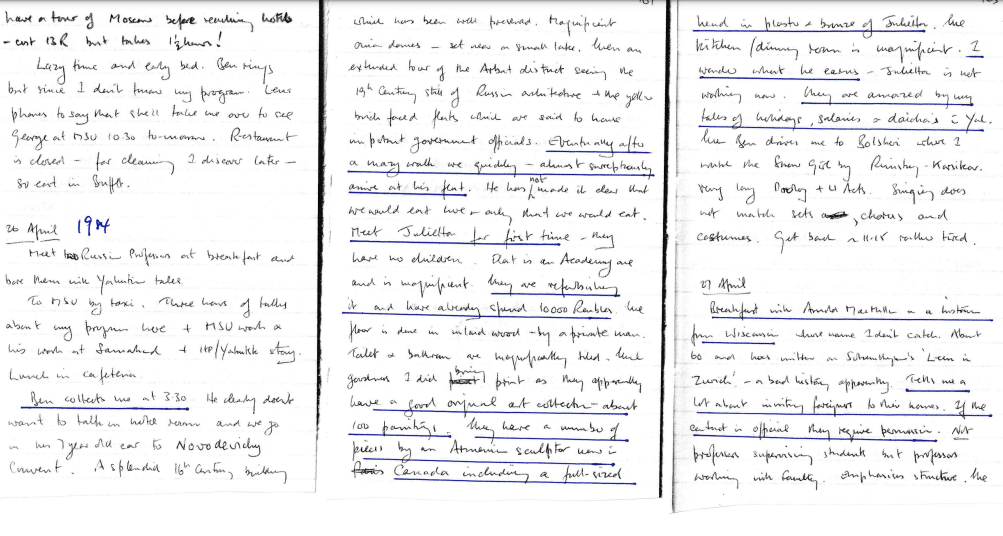 have a tour of Moscow before reaching hotel
- cost 13R but takes 1½ hours!
Lazy time and early bed. Ben rings
but since I don't know my program. Lena
phones to say that she'll take me over to see
George at MSU 10.30 to-morrow. Restaurant
is closed - for cleaning I discover later -
so eat in Buffet.
26 April 1984
Meet Russian Professors at breakfast and
bore them with Yakutian tales.
To MSU by taxi. Three hours of talks
about my program here + MSU work &
his work at Samarkand + ITP/Yakutsk story.
Lunch in cafeteria.
Ben collects me at 3.30. He clearly doesn't
want to talk in hotel room and we go
in his 7 year old car to Novodevichy
Convent. A splendid 16th Century building
which has been well preserved. Magnificent
onion domes - set near a small lake. Then an
extended tour of the Arbat district seeing the
19th Century style of Russian architecture + the yellow
brick faced flats which are said to house
important government officials. Eventually after
a mazy walk we quickly - almost surreptitiously
arrive at his flat. He has not made it clear that
we would eat here - only that we would eat.
Meet Julietta for first time - they
have no children. Flat is an Academy one
and is magnificent. They are refurbishing
it and have already spent 10000 Roubles. The
floor is done in inlaid wood - by a private man.
Toilet & bathroom are magnificently tiled. Thank
goodness I did bring print as they apparently
have a good original art collection - about
100 paintings. They have a number of
pieces by an Armenian sculptor now in
Canada including a full-sized
head in plaster & bronze of Julietta. The
kitchen/dining room is magnificent. I
wonder what he earns - Julietta is not
working now. They are amazed by my
tales of holidays, salaries & dacha's in Yak.
Then Ben drives me to Bolshoi where I
watch the Snow Girl by Rimsky-Korsikov.
Very long Prolog + 4 Acts. Singing does
not match sets, chorus and
costumes. Get back ~ 11.15 rather tired.
27 April
Breakfast with Arnold and a historian
from Wisconsin whose name I don't catch. About
60 and has written on Solzhenitsyn's 'Lenin in
Zurich' - a bad history apparently. Tells me a
lot about inviting foreigners to their homes. If the
contact is official they require permission. Not
professors supervising students but professors
working with faculty. Emphasises structure. The